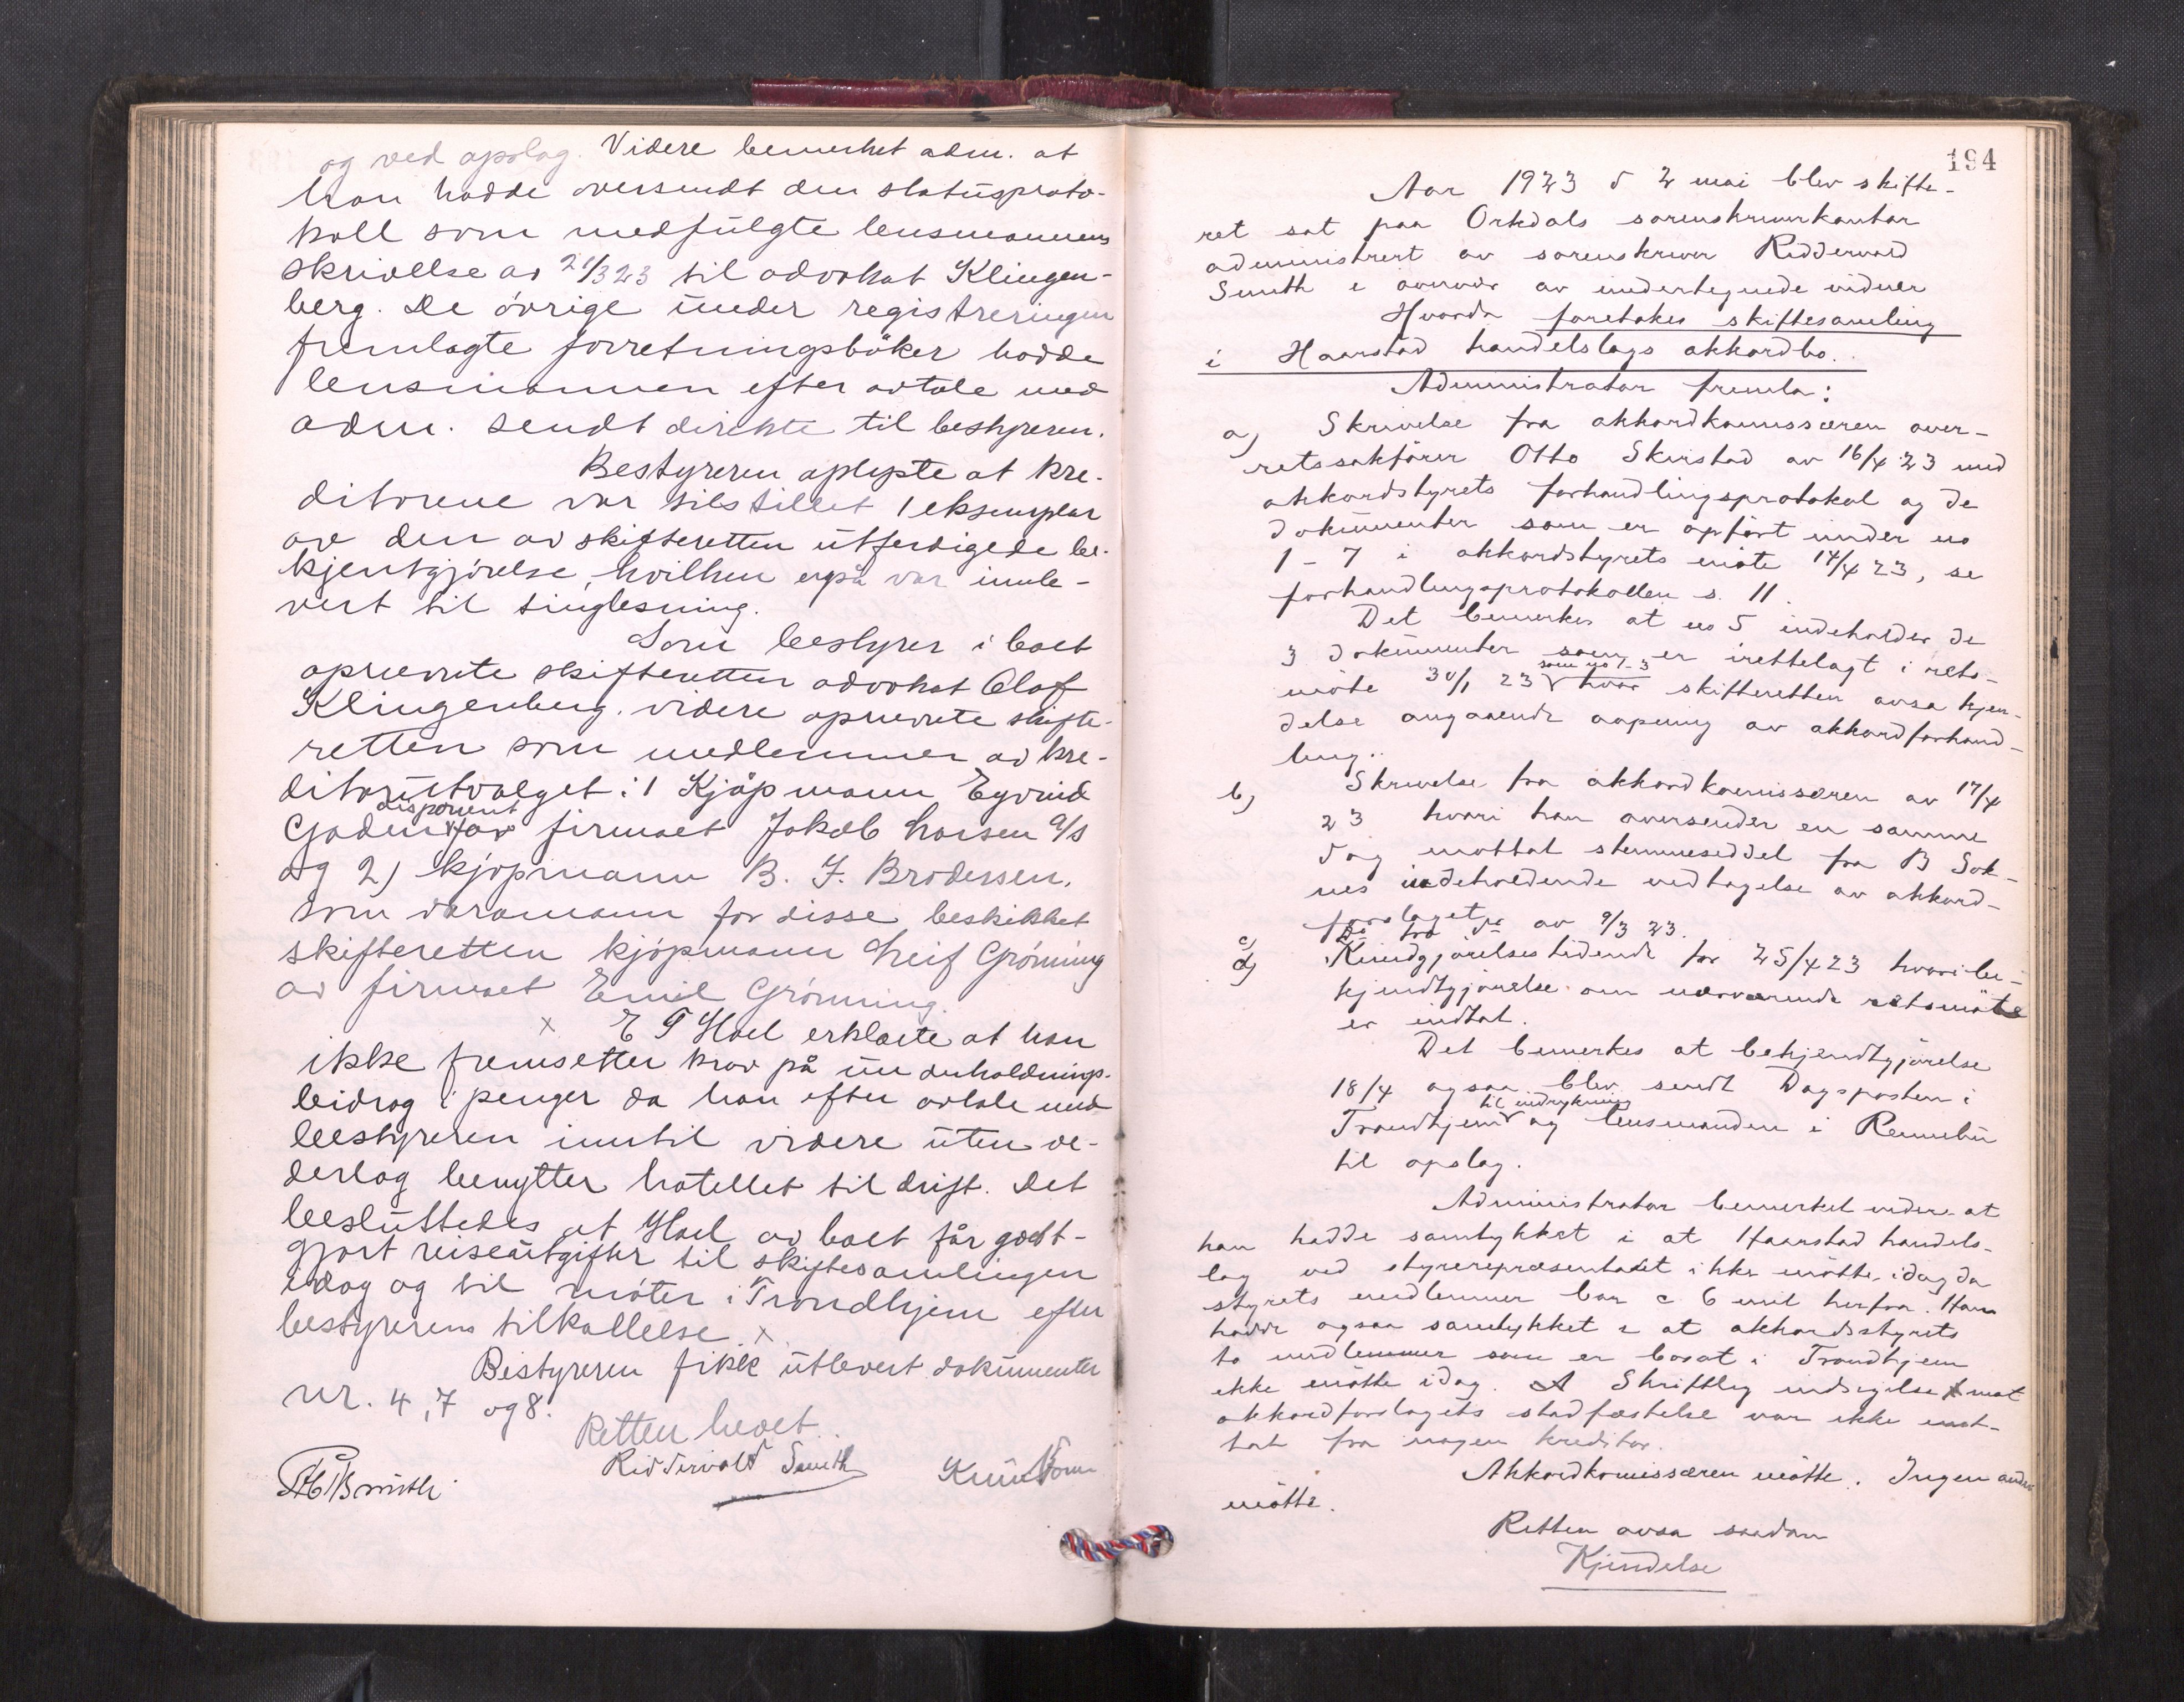 og ved opslag. Videre bemerket adm. at
han hadde oversendt den statusproto-
koll som medfulgte lensmannens
skrivelse av 21/3 23 til advokat Klingen-
berg. De övrige under registreringen
fremlagte forretningsböker hadde
lensmannen efter avtale med
adm. sendt direkte til bestyreren.
Bestyreren oplyste at kre-
ditorene var tilstillet 1 eksemplar
av den av skifteretten utferdigede be-
kjentgjörelse, hvilken også var innle-
vert til tinglesning.
Som bestyrer i boet
opnevnte skifteretten advokat Olaf
Klingenberg. videre opnevnte skifte-
retten som medlemmer av kre-
ditorutvalget: 1 Kjöpmann Eyvind
disponent
for firmaet Jakob Larsen A/S
og 2) kjöpmann B. F. Brodersen.
Som varamann for disse beskikket
skifteretten kjöpmann Leif Grönning
av firmaet Emil Grönning.
x E T Hoel erklærte at han
ikke fremsetter krav på underholdnings-
bidrag i penger da han efter avtale med
bestyreren inntil videre uten ve-
derlag benytter hotellet til drift. Det
besluttedes at Hoel av boet får godt-
gjort reiseutgifter til skiftesamlingen
idag og til möter i Trondhjem efter
bestyrerens tilkallelse. x
Bestyreren fikk utlevert dokumenter
nr. 4, 7 og 8.
Retten hevet.
Riddervold Smith
194
Aar 1923 d 2 mai blev skifte-
ret sat paa Orkdals sorenskriverkontor
administrert av sorenskriver Riddervold
Smith i overvær av undertegnede vidner
Hvorda foretokes skiftesamling
i Haarstad handelslags akkordbo.
Administrator fremla:
a) Skrivelse fra akkordkommissæren over-
retssakförer Otto Skirstad av 16/4 23 med
akkordstyrets forhandlingsprotokol og de
dokumenter som er opfört under no
1 - 7 i akkordstyrets möte 14/4 23, se
forhandlingsprotokollen s. 11.
Det bemerkes at no 5 indeholder de
3 dokumenter som er irettelagt i rets-
som no 1-3
möte 30/1 23 hvor skifteretten avsa kjen-
delse angaaende aapning av akkordforhand-
ling.
b) Skrivelse fra akkordkomissæren av 17/4
23 hvori han oversender en samme
dag mottat stemmeseddel fra B Sok-
nes indeholdende vedtagelse av akkord-
forslaget.
c) Do fra do av 9/3 23.
d) Kundgjörelsestidende for 25/4 23 hvori be-
kjendtgjörelse om nærværende retsmöte
er indtat.
Det bemerkes at bekjendtgjörelse
18/4 ogsaa blev sendt Dagsposten i
til indrykning
Trondhjem og lensmanden i Rennebu
til opslag.
Administrator bemerket videre at
han hadde samtykket i at Haarstad handels-
lag ved styrerepræsentant ikke mötte idag da
styrets medlemmer bor c 6 mil herfra. Han
hadde ogsaa samtykket i at akkordstyrets
to medlemmer som er bosat i Trondhjem
ikke mötte idag. Skriftlig indsigelse mot
akkordforslagets stadfæstelse var ikke mot-
tat fra nogen kreditor.
Akkordkomissæren mötte. Ingen andre
mötte.
Retten avsa saadan
Kjendelse